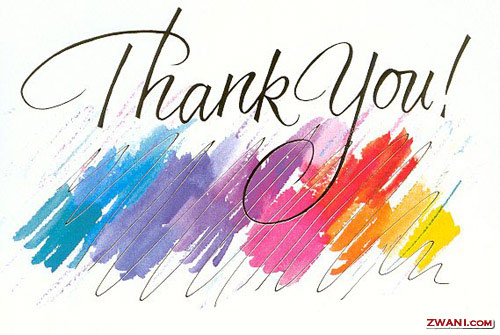 Thank You!
ZWANI.COM